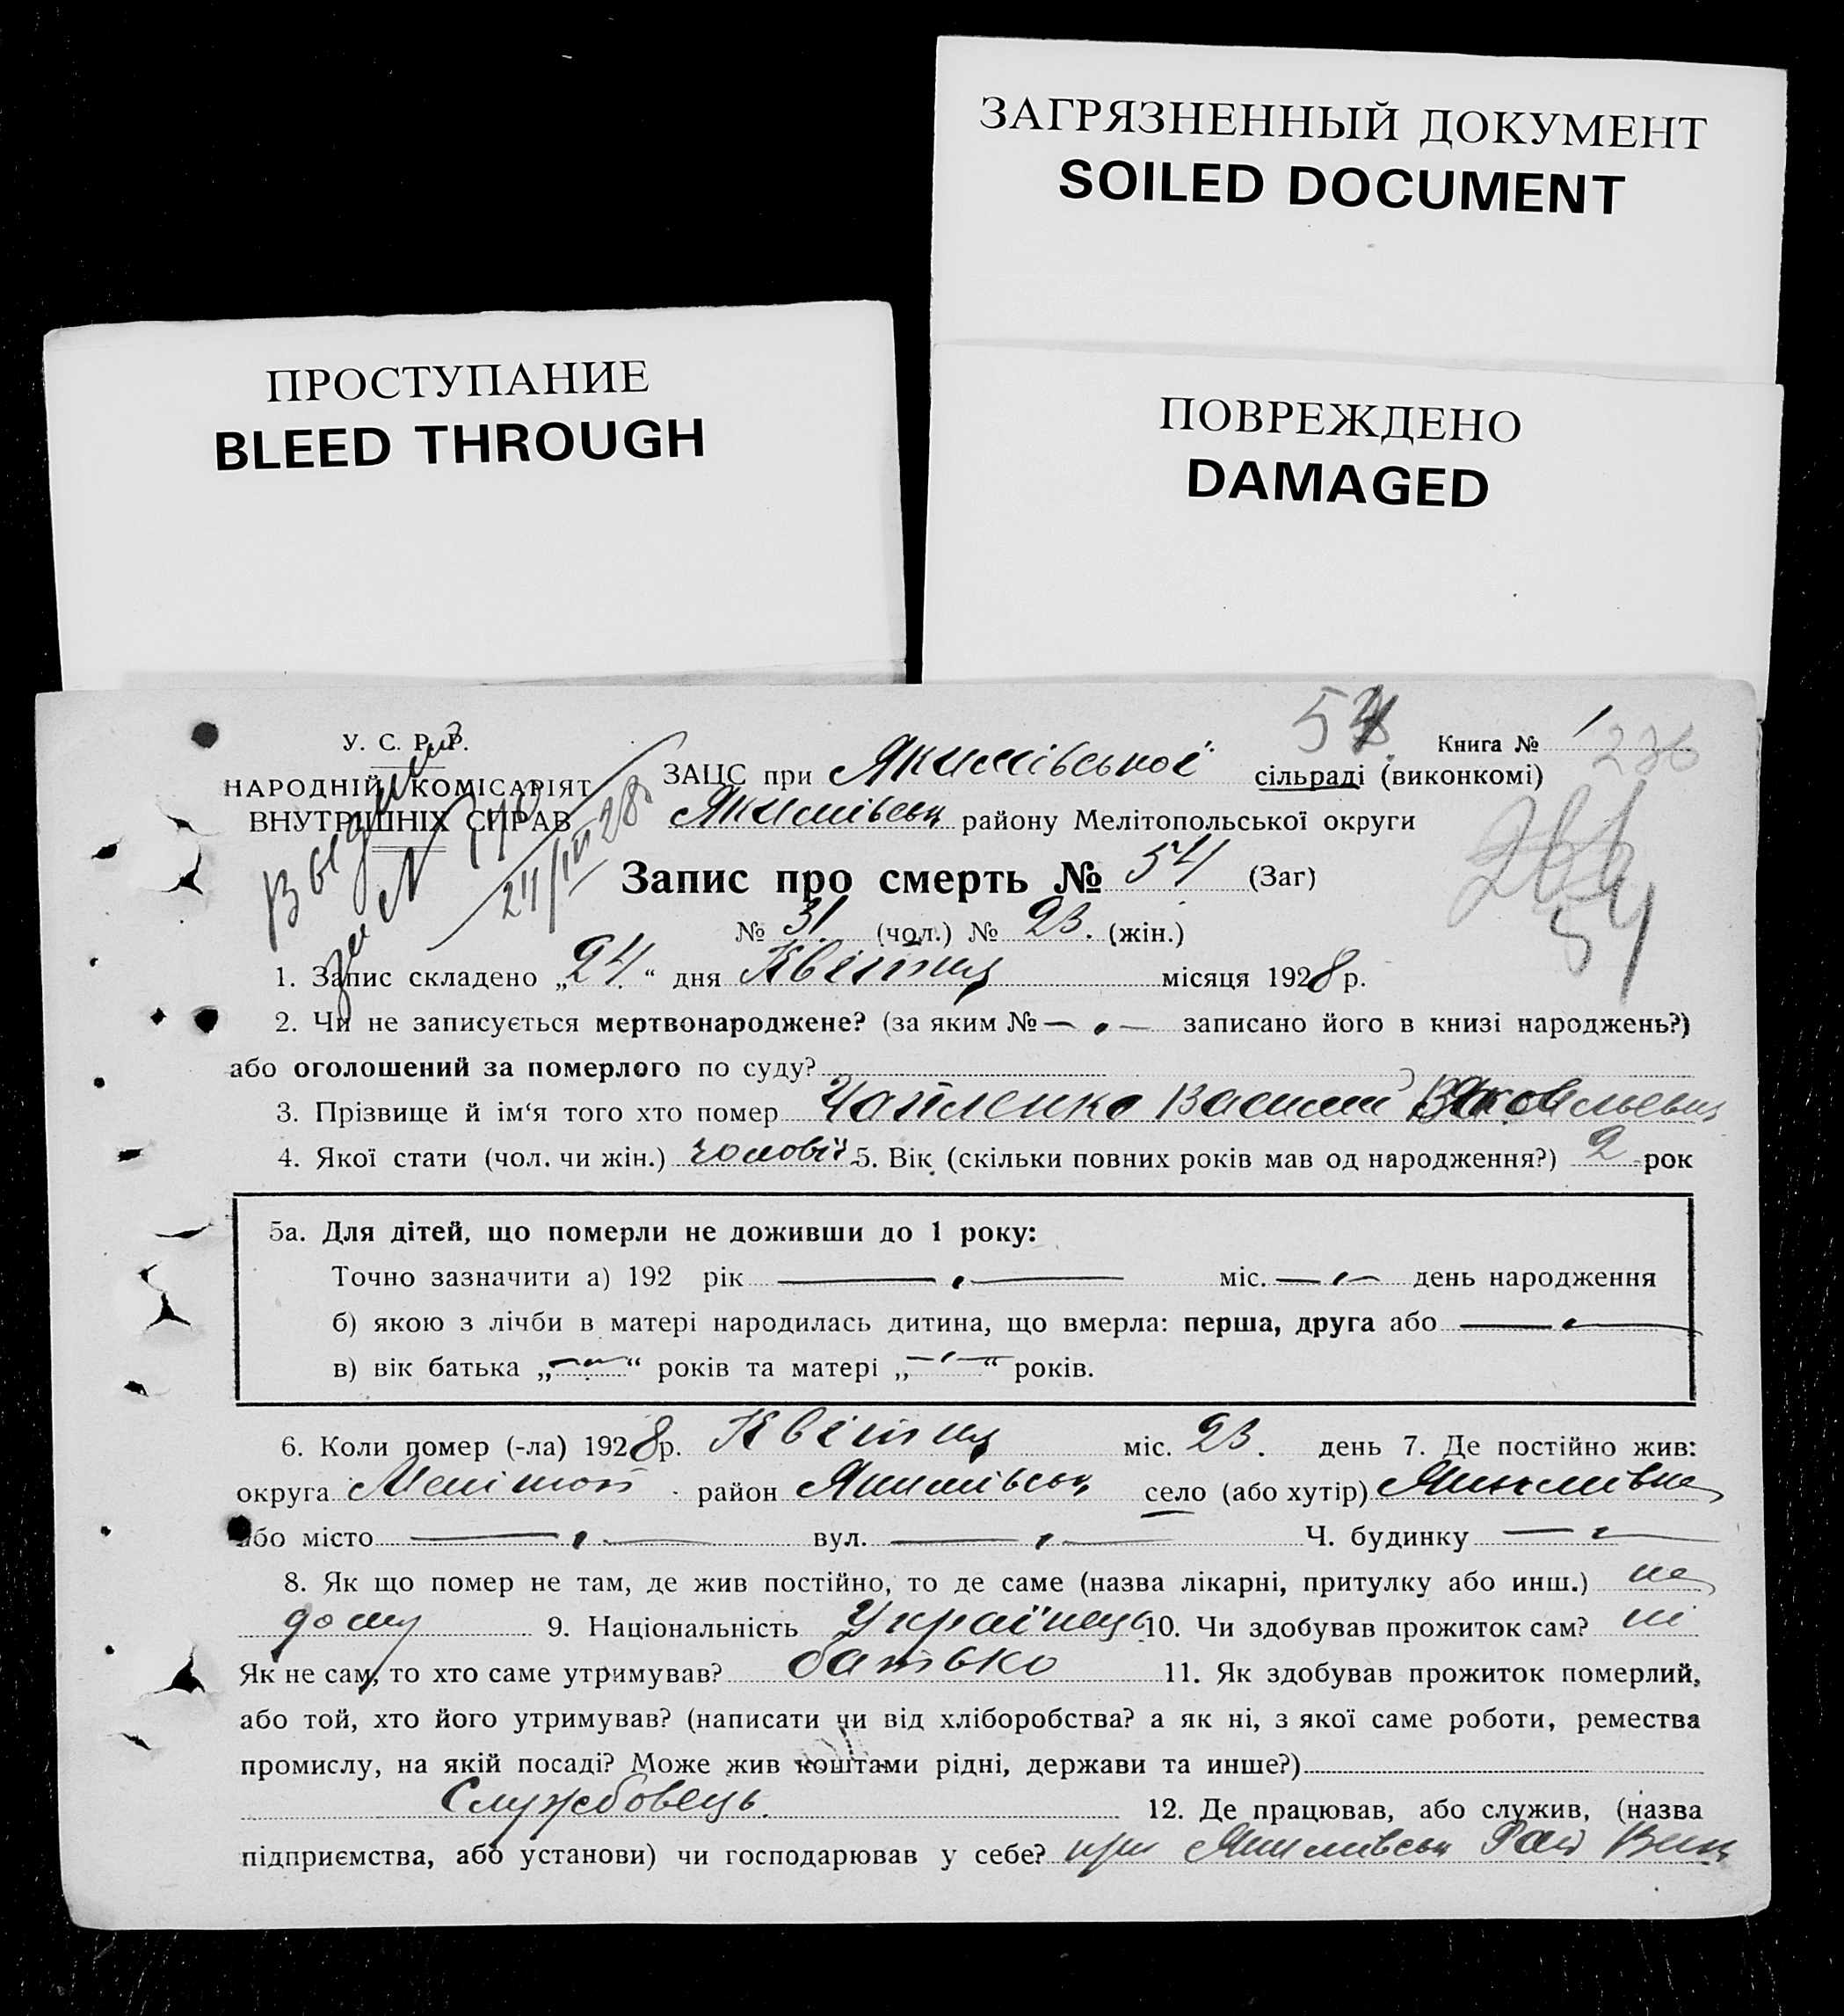 ЗАГРЯЗНЕННЫЙ ДОКУМЕНТ
SOILED DOCUMENT
ПРОСТУПАНИЕ
BLEED THROUGH
ПОВРЕЖДЕНО
DAMAGED
У. С. Р. Р.
НАРОДНІЙ КОМІСАРІЯТ
ВНУТРІШНІХ СПРАВ
54
Книга № 1
236
ЗАЦС при Якимівської сільраді (виконкомі)
Якимівськ району Мелітопольської округи
за №
24/IV 28
Запис про смерть № 54 (Заг)
54
№ 31. (чол.) № 23. (жін.)
1. Запис складено „24.“ дня Квітня місяця 1928 р.
2. Чи не записується мертвонароджене? (за яким № — записано його в книзі народжень?)
або оголошений за померлого по суду?
3. Прізвище й ім‘я того хто помер Чапленко Василий
4. Якої стати (чол. чи жін.) чоловіч. 5. Вік (скільки повних років мав од народження?) 2 рок
5а. Для дітей, що померли не доживши до 1 року:
Точно зазначити а) 192 рік — міс. — день народження
б) якою з лічби в матері народилась дитина, що вмерла: перша, друга або —
в) вік батька „—“ років та матері „—“ років.
6. Коли помер (-ла) 1928 р. Квітня міс. 23. день 7. Де постійно жив:
округа Мелітоп. район Якимівськ село (або хутір) Якимівка
або місто — вул. — Ч. будинку —
8. Як що помер не там, де жив постійно, то де саме (назва лікарні, притулку або инш.) на
дому 9. Національність Українець 10. Чи здобував прожиток сам? ні
Як не сам, то хто саме утримував? батько 11. Як здобував прожиток померлий,
або той, хто його утримував? (написати чи від хліборобства? а як ні, з якої саме роботи, ремества
промислу, на якій посаді? Може жив коштами рідні, держави та инше?)
Службовець. 12. Де працював, або служив, (назва
підприємства, або установи) чи господарював у себе? при Якимівськ Рай Вик